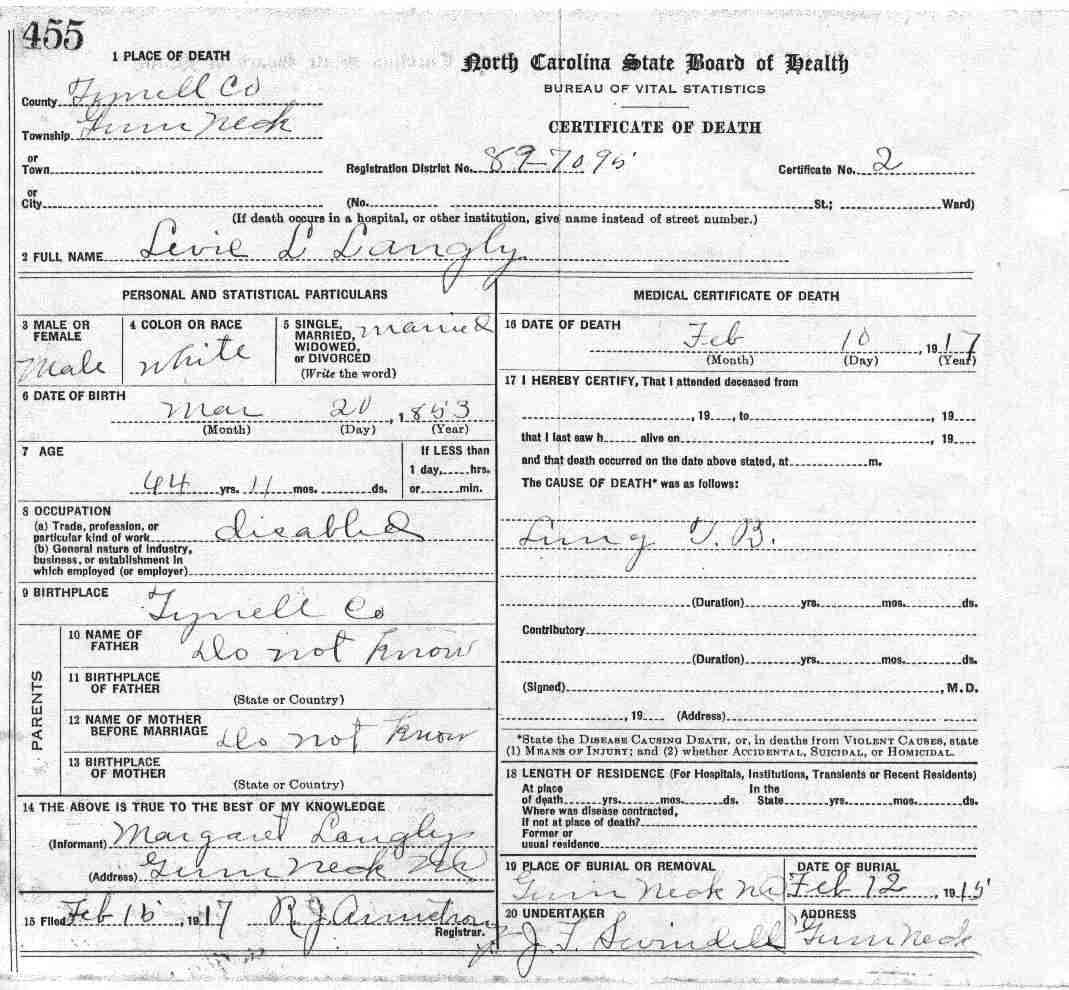 455
North Carolina State Board of Health
BUREAU OF VITAL STATISTICS
CERTIFICATE OF DEATH
1 PLACE OF DEATH
County Tyrrell Co
Township Gum Neck
or
Town
Registration District No. 89-7095 Certificate No. 2
or
City (No. St.; Ward)
(If death occurs in a hospital, or other institution, give name instead of street number.)
2 FULL NAME Levie L Langly
PERSONAL AND STATISTICAL PARTICULARS
3 MALE OR FEMALE
Male
4 COLOR OR RACE
White
5 SINGLE, MARRIED, WIDOWED, or DIVORCED
(Write the word)
married
6 DATE OF BIRTH
Mar 20, 1853
(Month) (Day) (Year)
7 AGE
If LESS than
1 day, hrs.
or min.
44 yrs. 11 mos. ds.
8 OCCUPATION
(a) Trade, profession, or
particular kind of work disabled
(b) General nature of industry,
business, or establishment in
which employed (or employer)
9 BIRTHPLACE
Tyrrell Co
PARENTS
10 NAME OF FATHER
Do not know
11 BIRTHPLACE OF FATHER
(State or Country)
12 NAME OF MOTHER BEFORE MARRIAGE
Do not know
13 BIRTHPLACE OF MOTHER
(State or Country)
14 THE ABOVE IS TRUE TO THE BEST OF MY KNOWLEDGE
(Informant) Margaret Langly
(Address) Gum Neck NC
15 Filed Feb 15, 1917 R J Armstrong
Registrar.
MEDICAL CERTIFICATE OF DEATH
16 DATE OF DEATH
Feb 10, 1917
(Month) (Day) (Year)
17 I HEREBY CERTIFY, That I attended deceased from
, 19 , to , 19
that I last saw h alive on , 19
and that death occurred on the date above stated, at m.
The CAUSE OF DEATH* was as follows:
Lung T. B.
(Duration) yrs. mos. ds.
Contributory
(Duration) yrs. mos. ds.
(Signed) , M.D.
, 19 (Address)
*State the DISEASE CAUSING DEATH, or, in deaths from VIOLENT CAUSES, state
(1) MEANS OF INJURY; and (2) whether ACCIDENTAL, SUICIDAL, or HOMICIDAL.
18 LENGTH OF RESIDENCE (For Hospitals, Institutions, Transients or Recent Residents)
At place In the
of death yrs. mos. ds. State yrs. mos. ds.
Where was disease contracted,
If not at place of death?
Former or
usual residence
19 PLACE OF BURIAL OR REMOVAL
Gum Neck NC
DATE OF BURIAL
Feb 12, 1915
20 UNDERTAKER
J. F. Swindell
ADDRESS
Gum Neck